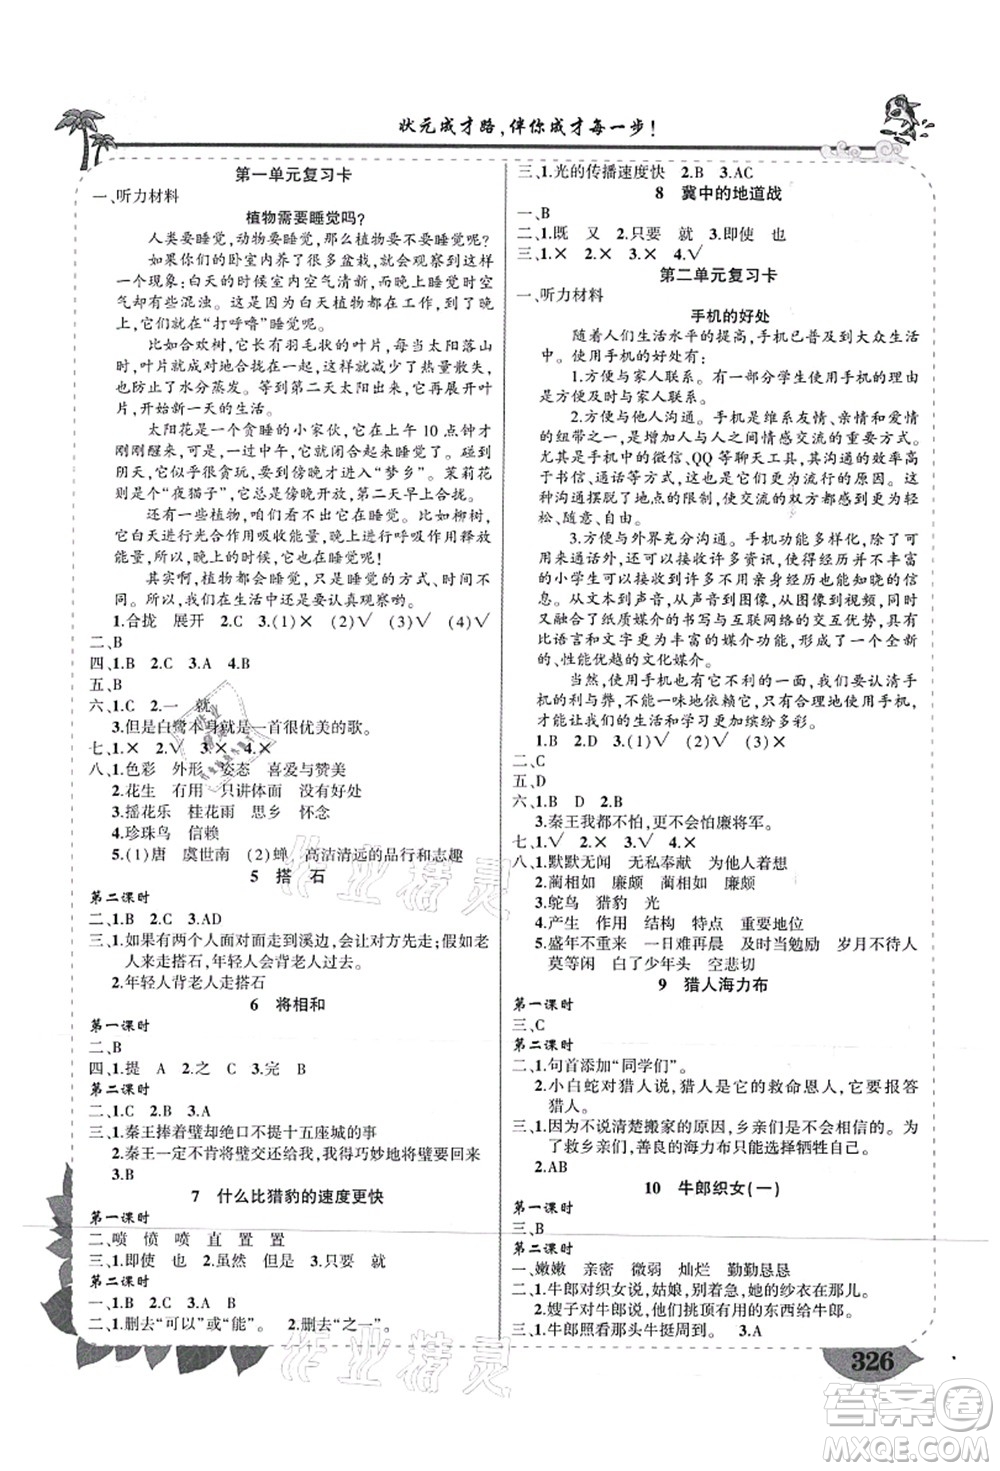 状元成才路,伴你成才每一步!
第一单元复习卡
一、听力材料
植物需要睡觉吗?
人类要睡觉,动物要睡觉,那么植物要不要睡觉呢?
如果你们的卧室内养了很多盆栽,就会观察到这样
一个现象:白天的时候室内空气清新,而晚上时室内空
气却有些混浊。这是因为白天植物都在工作,等到了晚
上,它们就在“打呼噜”睡觉了。
比如合欢树,它长着羽毛状的叶片,每当太阳落山
时,叶片就会成对地折合在一起,这样能减少热量散失,
也防止了水分蒸发。等到第二天太阳出来,它再展开叶
片,开始新一天的生活。
太阳花是一个贪睡的小家伙,它在上午 10 点钟才
刚刚醒来,可是一过中午,它就又闭合睡觉了。碰到
阴天,它似乎就很贪玩,到傍晚才进入“梦乡”。茉莉花
则是一个“夜猫子”,它总是傍晚开放,第二天上午合拢。
还有一些植物,咱们看不出它在睡觉。比如柳树,
它白天进行光合作用吸收能量,晚上进行呼吸作用释放
能量,所以,晚上的时候,它们也在睡觉哦!
其实啊,植物都会睡觉,只是睡觉的方式和时间不
同。所以,我们在生活中还是要认真观察哟。
1.合拢 展开 2.C 3.(1)× (2)√ (3)√ (4)√
二、B
四、1.B 2.C 3.A 4.B
五、B
六、1.C 2.一 就
3.但是白鹭本身就是一首很优美的歌。
七、1.× 2.√ 3.× 4.×
八、1.色彩 外形 姿态 喜爱与赞美
2.花生 有用 只讲体面 没有好处
3.摇花乐 桂花雨 思乡 怀念
4.珍珠鸟 信赖
5.(1)唐 虞世南 (2)蝉 高洁清远的品行和志趣
5 搭 石
第二课时
二、1.B 2.C 3.AD
三、1.如果有两个人面对面走到溪边,会让对方先走;假如老
人来走搭石,年轻人会背老人过去。
2.年轻人背老人走搭石
6 将相和
第一课时
二、B
四、1.提 A 2.之 C 3.完 B
第二课时
二、1.C 2.B 3.A
三、1.秦王捧着璧却绝口不提十五座城的事
2.秦王一定不肯将璧交还给我,我得巧妙地将璧要回来
3.B
7 什么比猎豹的速度更快
第一课时
二、喷 愤 喷 直 置 置
三、1.即使 也 2.虽然 但是 3.只要 就
第二课时
一、1.B 2.C 3.A
二、1.删去“可以”或“能”。 2.删去“之一”。
三、1.光的传播速度快 2.B 3.AC
8 冀中的地道战
一、B
二、1.既 又 2.只要 就 3.即使 也
三、1.× 2.× 3.× 4.√
第二单元复习卡
一、听力材料
手机的好处
随着人们生活水平的提高,手机已普及到大众生活
中。使用手机的好处有:
1.方便与家人联系。有一部分学生使用手机的理由
是方便及时与家人联系。
2.方便与他人沟通。手机是维系友情、亲情和爱情
的纽带之一,也是增加人与人之间情感交流的重要桥梁。
尤其是手机中的微信、QQ等聊天工具,其沟通的效率高
于书信、电话等方式,也更能激发人的沟通欲望。这
种沟通摆脱了地点的限制,使交流的双方都感到更轻
松、随意、自由。
3.方便与外界充分沟通。手机功能丰富,除了可以
打电话外,还可以接收许多资讯,使得经历并不丰富
的小学生可以接触到更多不用亲身经历也能知晓的信
息。从文本到声音,从声音到图像,从图像到视频,手机
又融合了纸质媒介的书写与互联网络的交互优势,具有
比语言和文字更为丰富的媒介功能,是一种全新
的、性能优越的文化媒介。
当然,使用手机也有它不利的一面,我们要认清手
机的利与弊,不能一味地依赖它,这样才能让手机
使我们的生活和学习更加缤纷多彩。
1.B 2.D 3.(1)× (2)√ (3)×
二、C
五、D
六、1.B D 2.B
3.秦王我都不怕,更不会怕廉将军。
七、1.√ 2.× 3.√ 4.×
八、1.默默无闻 无私奉献 为他人着想
2.蔺相如 廉颇 蔺相如 廉颇
3.鸵鸟 猎豹 光
4.产生 作用 结构 特点 重要地位
5.盛年不重来 一日难再晨 及时当勉励 岁月不待人
莫等闲 白了少年头 空悲切
9 猎人海力布
第一课时
三、C
第二课时
二、1.句首添加“同学们”。
2.小白蛇对猎人说,猎人是它的救命恩人,它要报答
猎人。
三、1.因为不说清楚搬家的原因,乡亲们是不会相信的。为
了救乡亲们,善良的海力布只能选择牺牲自己。
2.AB
10 牛郎织女(一)
第一课时
三、B
第二课时
一、嫩嫩 亲密 微弱 灿烂 勤勤恳恳
二、1.牛郎对织女说,姑娘,别着急,她的纱衣在那儿。
2.嫂子对牛郎说,他们挑顶有用的东西给牛郎。
三、1.B 2.牛郎照看那头牛挺周到。 3.A
326
作业精灵
作业精灵
答案圈
MXQE.COM